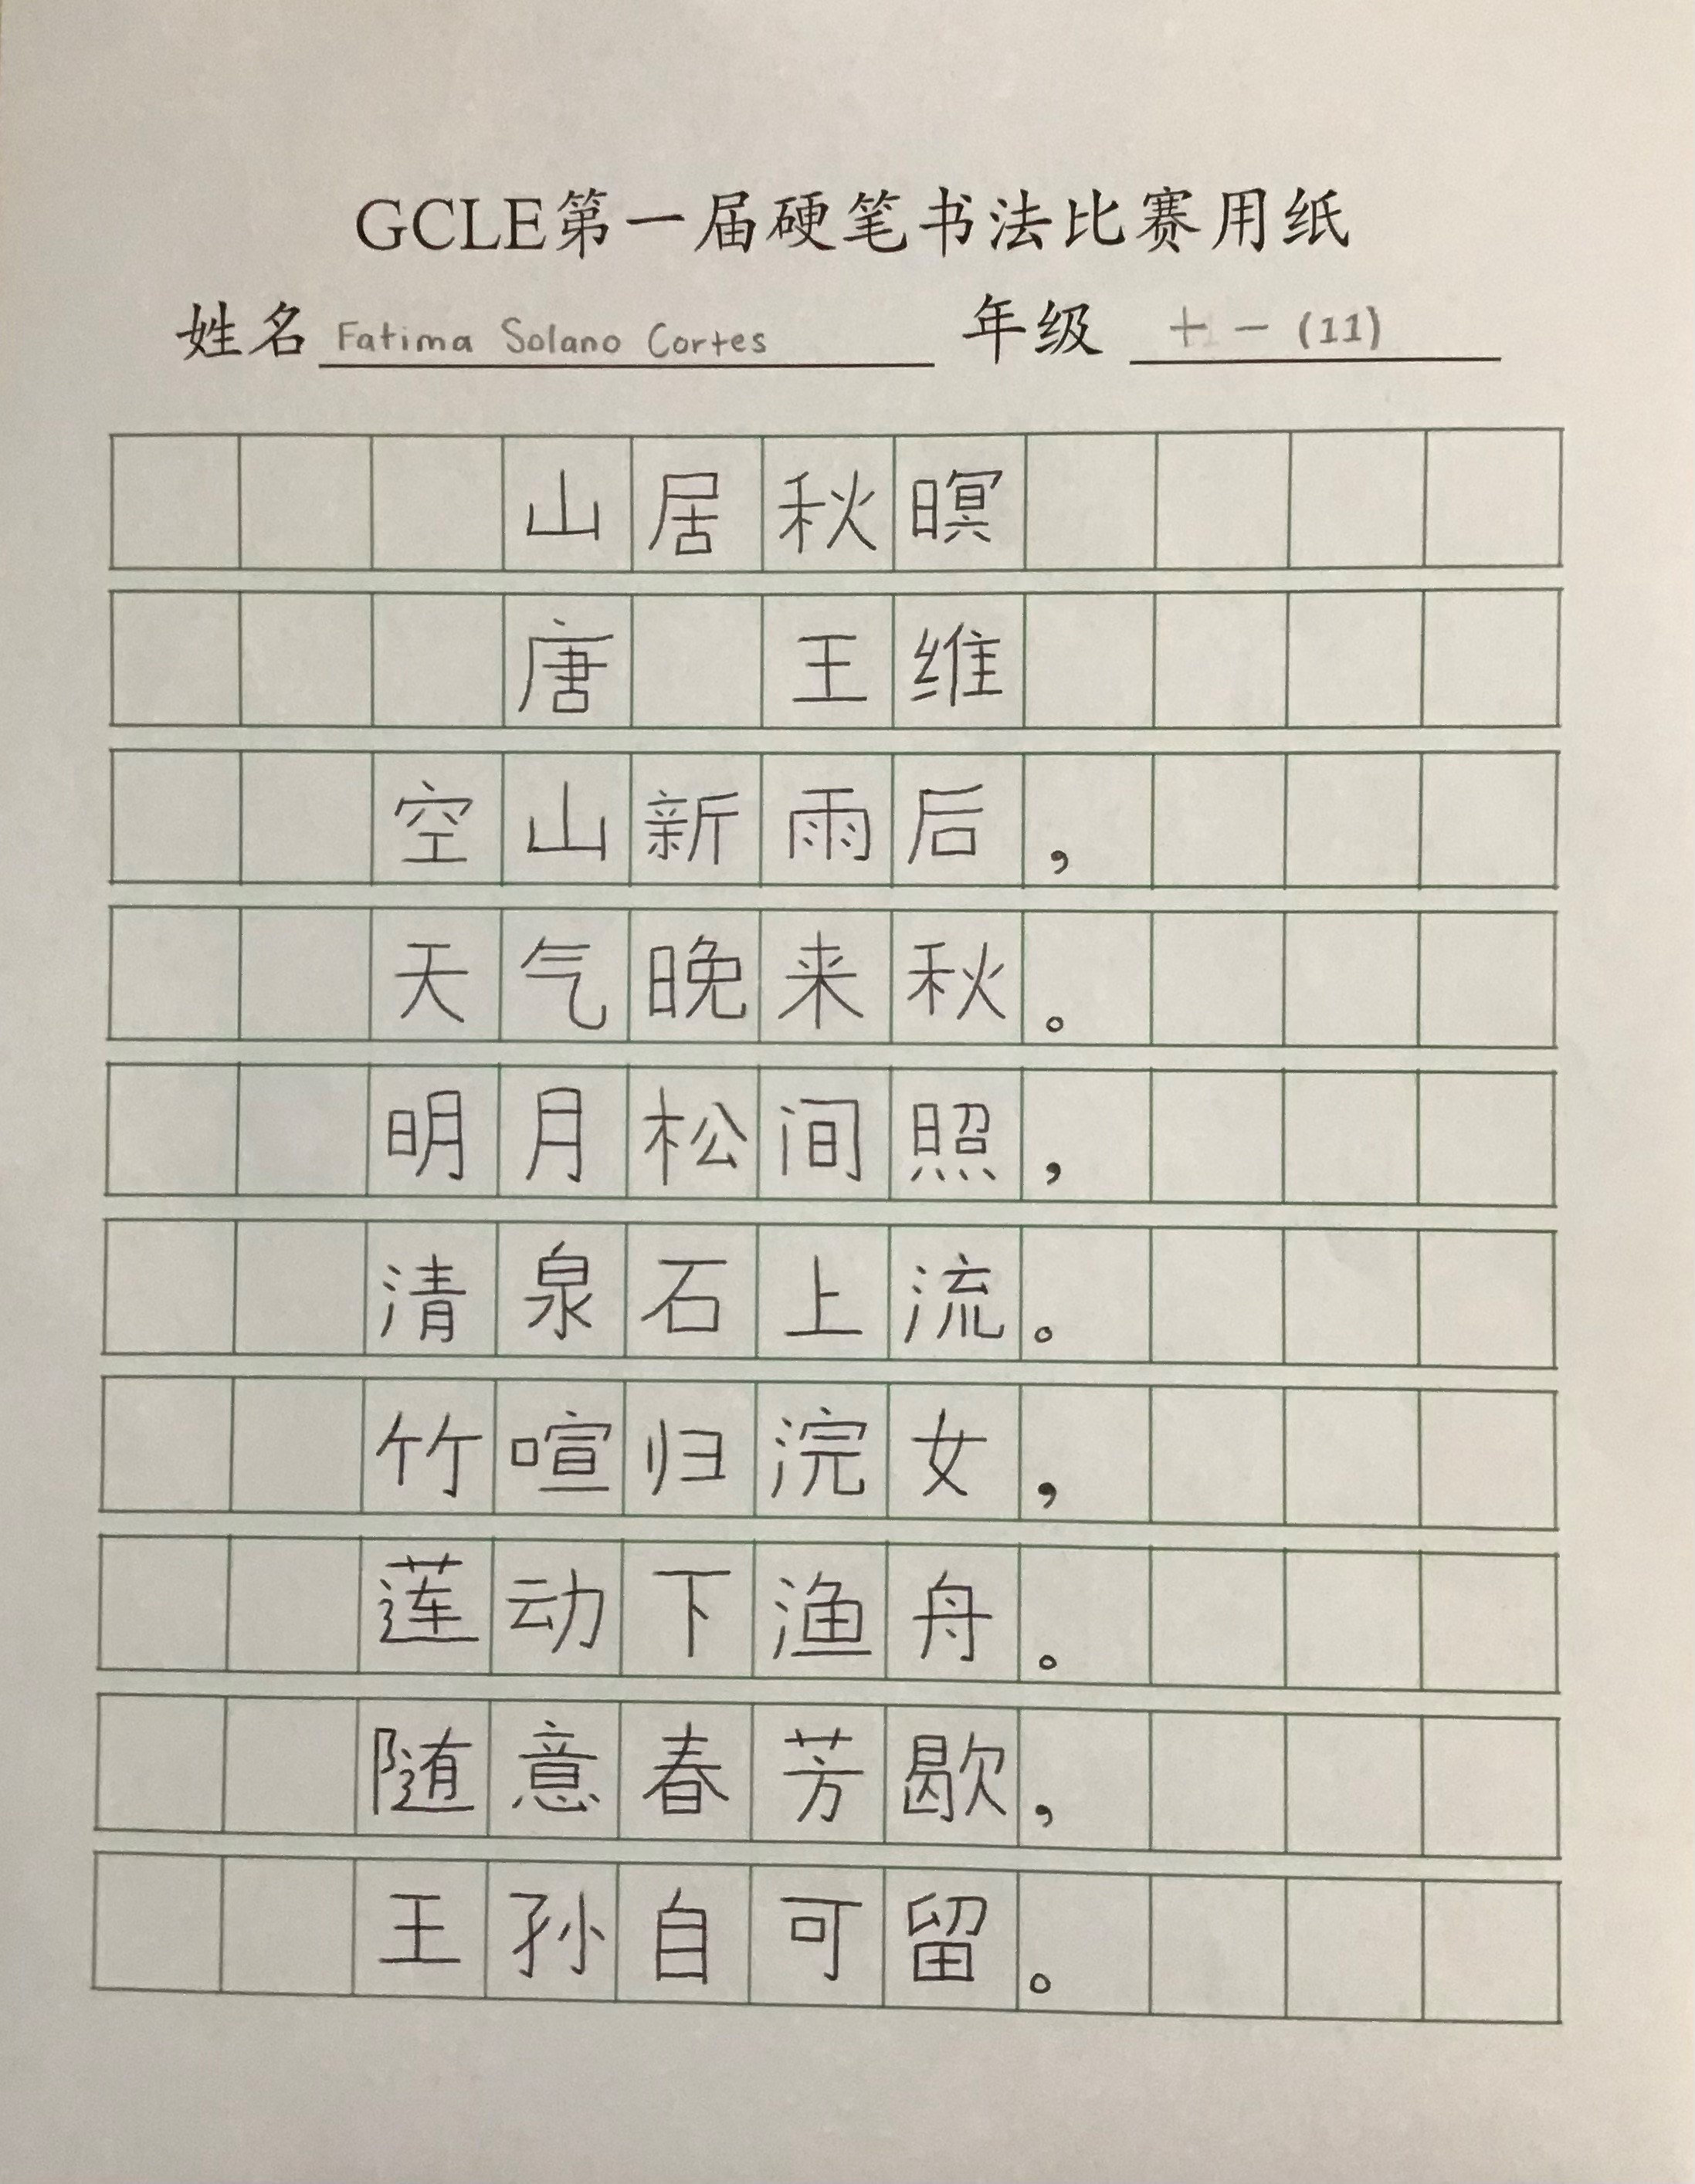 GCLE第一届硬笔书法比赛用纸
姓名 Fatima Solano Cortes 年级 十一 (11)
山居秋暝
唐 王维
空山新雨后，
天气晚来秋。
明月松间照，
清泉石上流。
竹喧归浣女，
莲动下渔舟。
随意春芳歇，
王孙自可留。